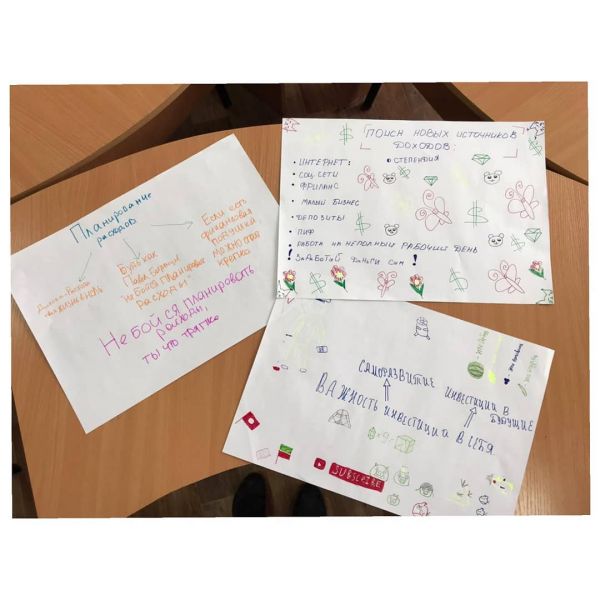 Планирование
расходов
Будь как
Павел Буранов
"Не бойся планировать
расходы"
Если есть
финансовая
подушка,
можно спать
крепко
Не бойся планировать
расходы,
ты что тряпка
ПОИСК НОВЫХ ИСТОЧНИКОВ
ДОХОДОВ:
• ИНТЕРНЕТ:
• СТЕПЕНДИЯ
• СОЦ. СЕТИ
• ФРИЛАНС
• МАЛЫЙ БИЗНЕС
• ДЕПОЗИТЫ
• ПИФ
РАБОТА НА НЕПОЛНЫЙ РАБОЧИЙ ДЕНЬ
! ЗАРАБОТАЙ ДЕНЬГИ САМ !
САМОРАЗВИТИЕ
ИНВЕСТИЦИИ В
БУДУЩИЕ
ВАЖНОСТЬ ИНВЕСТИЦИЙ В СЕБЯ
SUBSCRIBE